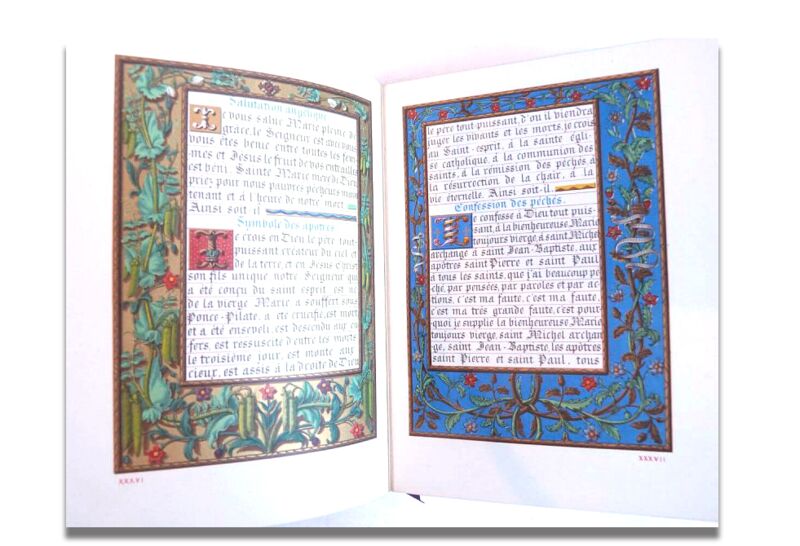 Salutation angélique
Je vous salue Marie pleine de
grâce, le Seigneur est avec vous
vous êtes bénie entre toutes les fem-
mes et Jésus le fruit de vos entrailles
est béni. Sainte Marie mère de Dieu
priez pour nous pauvres pécheurs main-
tenant et à l'heure de notre mort.
Ainsi soit il.
Symbole des apôtres.
Je crois en Dieu le père tout-
puissant créateur du ciel et
de la terre, et en Jésus Christ
son fils unique notre Seigneur qui
a été conçu du saint esprit, est né
de la vierge Marie a souffert sous
Ponce-Pilate, a été crucifié, est mort
et a été enseveli, est descendu aux en-
fers, est ressuscité d'entre les morts
le troisième jour, est monté aux
cieux, est assis à la droite de Dieu
XXXVI
le père tout puissant, d'où il viendra
juger les vivants et les morts, je crois
au Saint-esprit, à la sainte égli-
se catholique, à la communion des
saints, à la rémission des péchés à
la résurrection de la chair, à la
vie éternelle. Ainsi soit-il.
Confession des péchés.
Je confesse à Dieu tout puis-
sant, à la bienheureuse Marie
toujours vierge, à saint Michel
archange à saint Jean-Baptiste, aux
apôtres saint Pierre et saint Paul
à tous les saints, que j'ai beaucoup pé-
ché, par pensées, par paroles et par ac-
tions, c'est ma faute, c'est ma faute,
c'est ma très grande faute, c'est pour-
quoi je supplie la bienheureuse Marie
toujours vierge, saint Michel archan-
ge, saint Jean-Baptiste, les apôtres
saint Pierre et saint Paul, tous
XXXVII